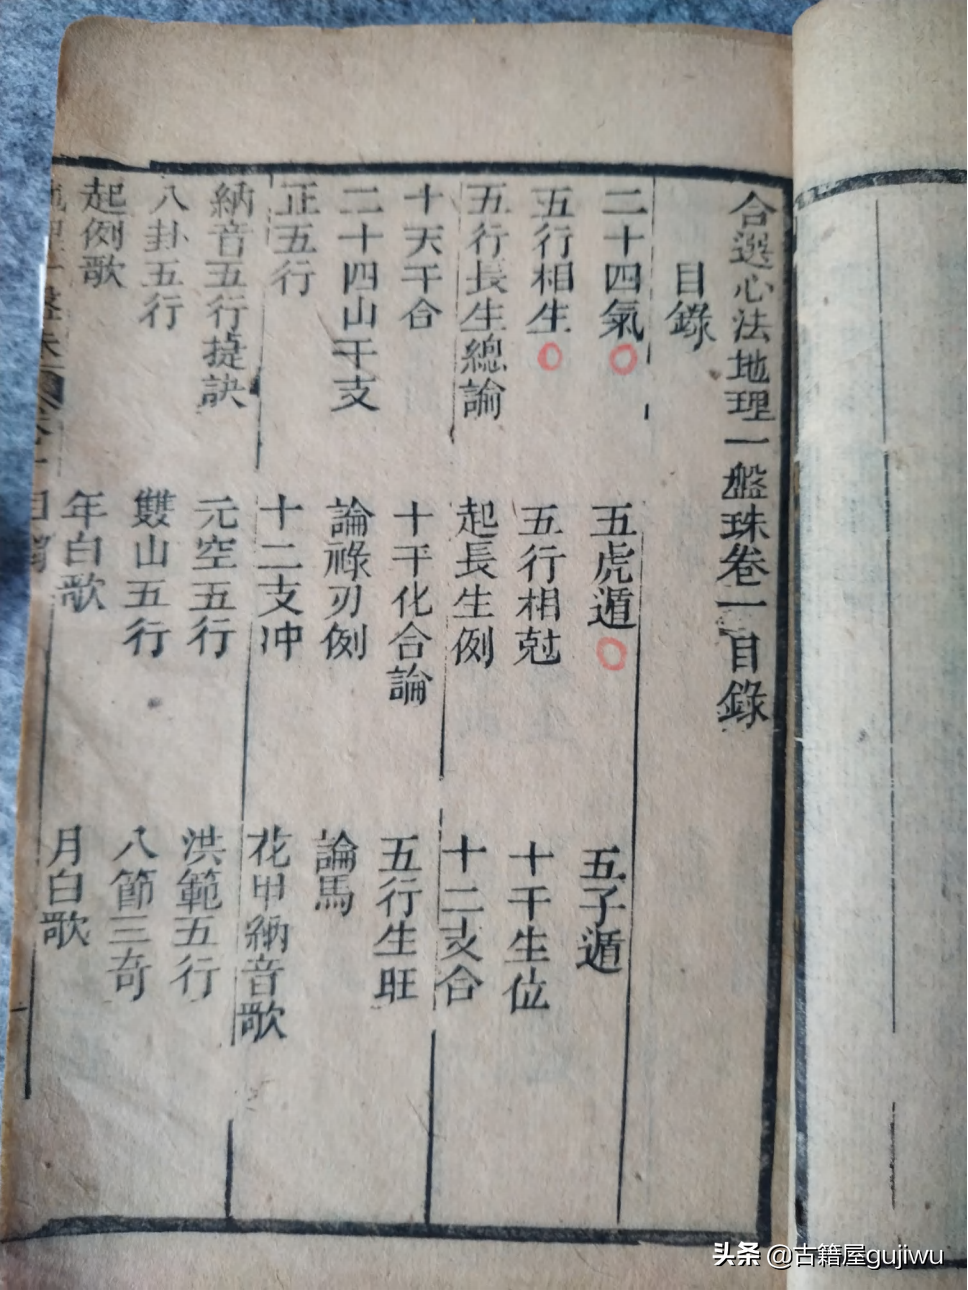 合選心法地理一盤珠卷一目錄
目錄
二十四氣 五虎遁 五子遁
五行相生 五行相尅 十干生位
五行長生總論 起長生例 十二支合
十天干合 十干化合論 五行生旺
二十四山干支 論祿刃例 論馬
正五行 十二支冲 花甲納音歌
納音五行捷訣 元空五行 洪範五行
八卦五行 雙山五行 八節三奇
起例歌 年白歌 月白歌
头条 @古籍屋gujiwu